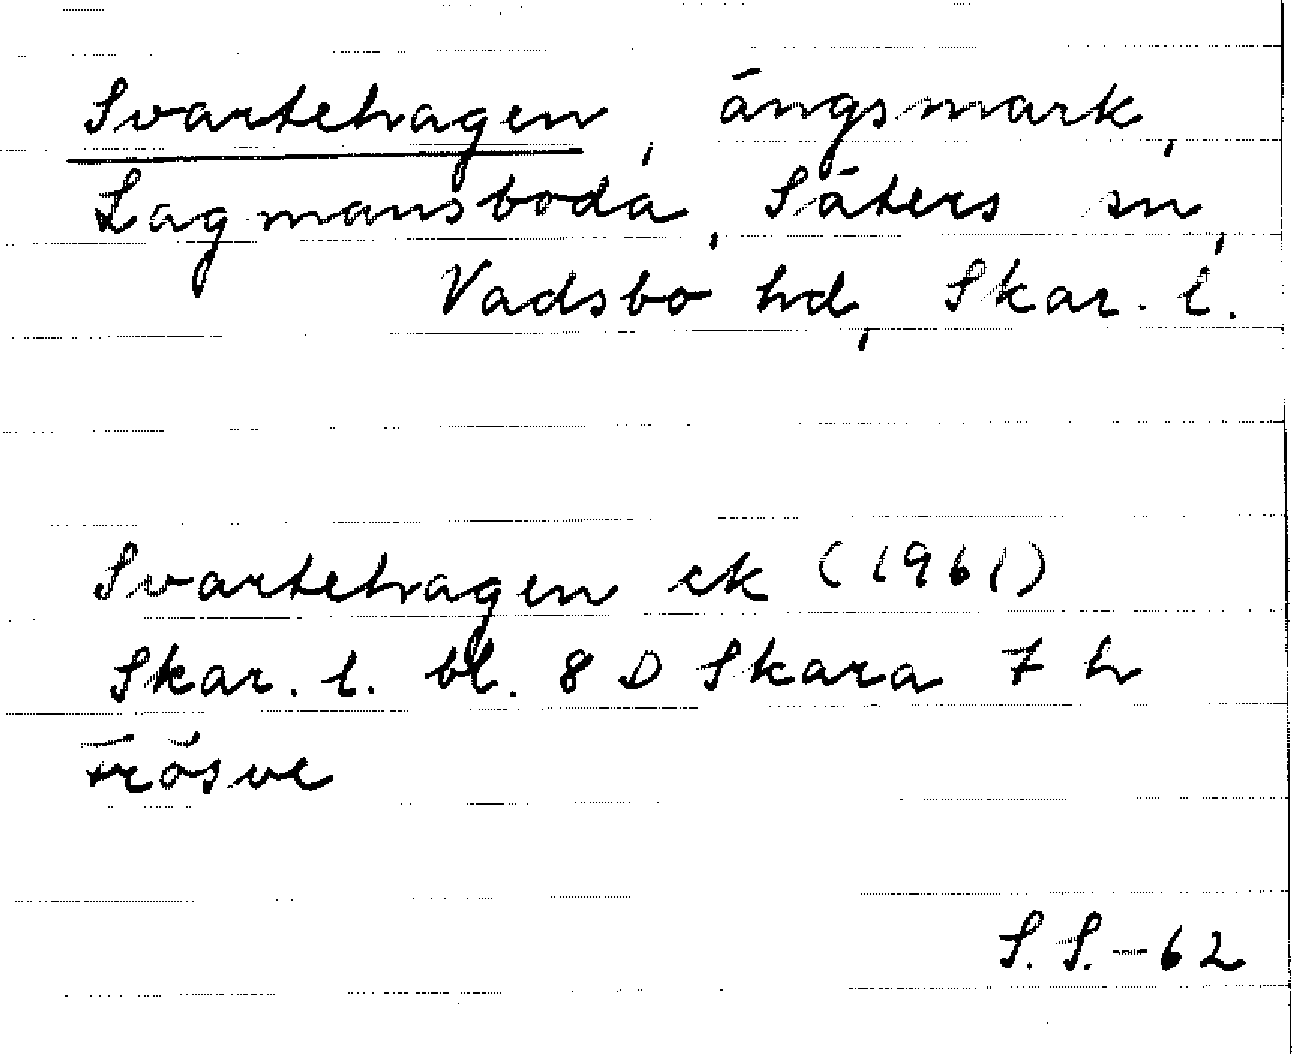 Svartehagen, ängsmark,
Lagmansboda, Säters sn,
Vadsbo hd, Skar. l.
Svartehagen ek (1961)
Skar. l. bl. 8 D Skara 7 h
Frösve
S. S. - 62